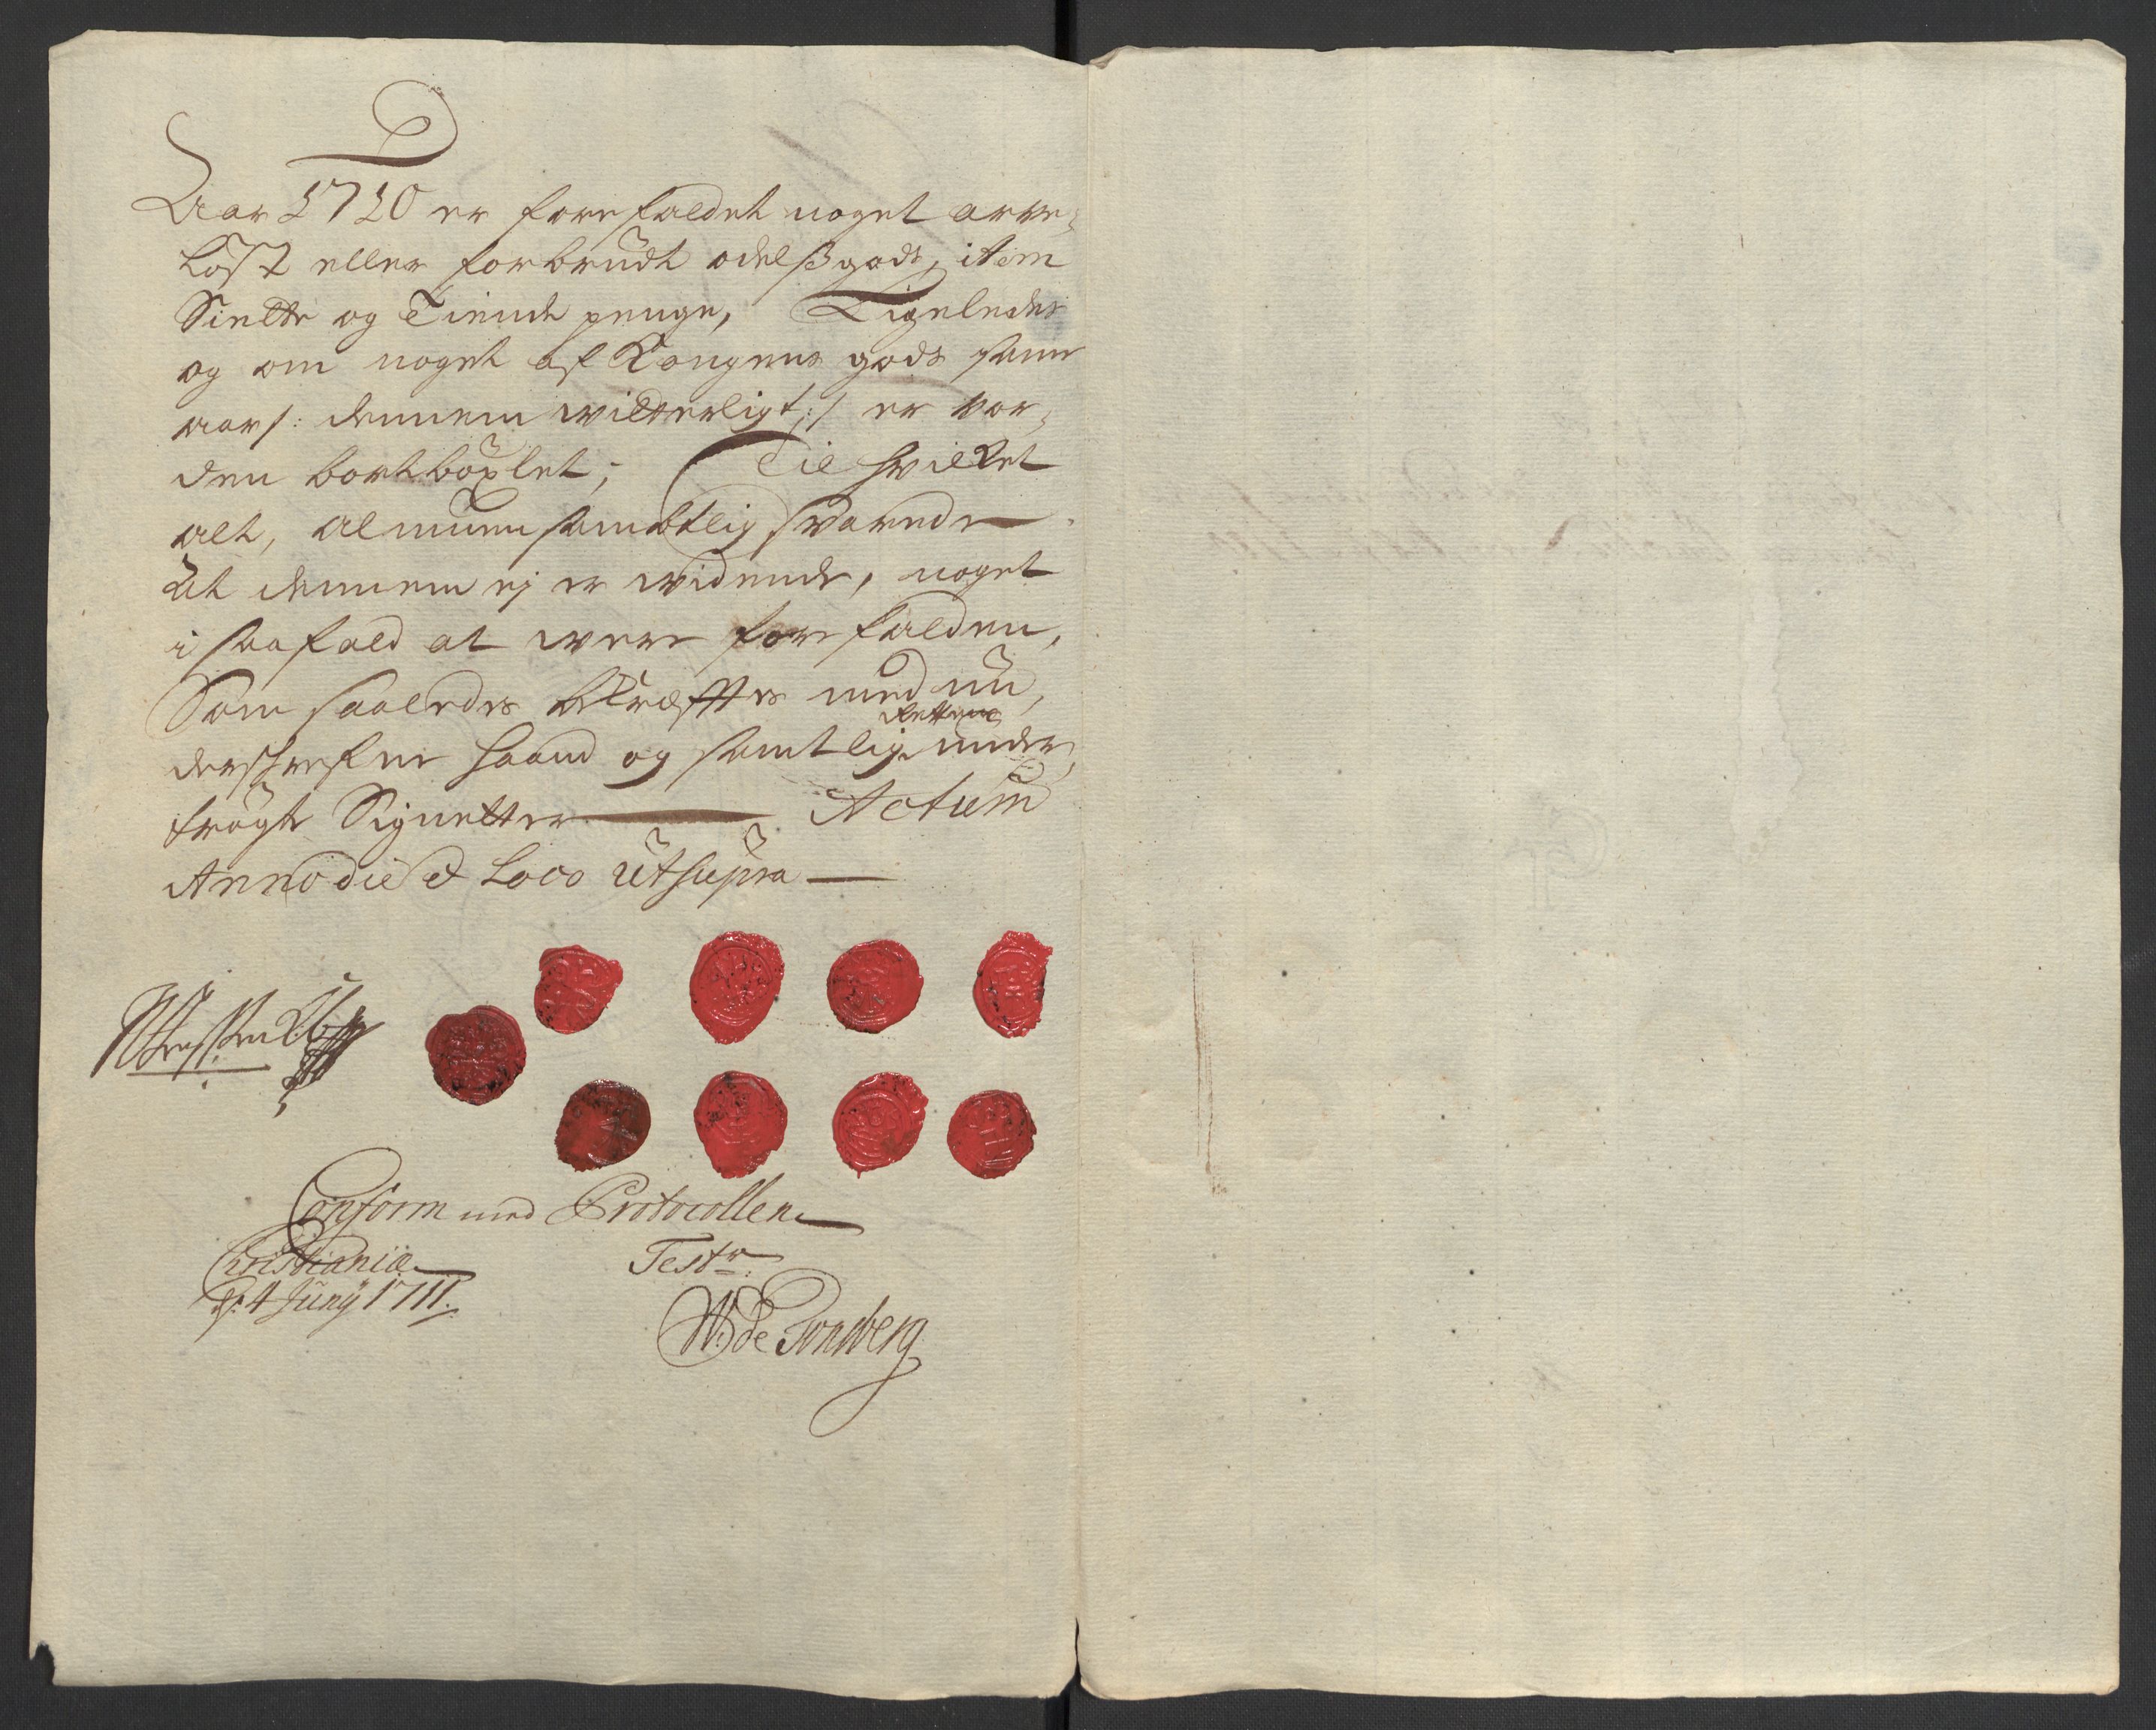 Aar 1710 er forefaldet noget arve-
löst eller forbrudt odelsgods, item
Siette og Tiende penge, Ligeledes
og om noget af Kongens gods samme
aar /: dennem witterligt :/ er vor-
den bortböxlet; Til hvilket
alt, almuen sambtlig svarede
At dennem ej er widende, noget
i saafald at were forefalden,
Som saaledes bekræfftes med un-
derschrefne haand og samtlig Rettens under-
trögte Signetter Actum
Anno die et Loco utsupra
Conform med Protocollen
Christiania Test
d. 4 Juny 1711.
W: de Tonsberg